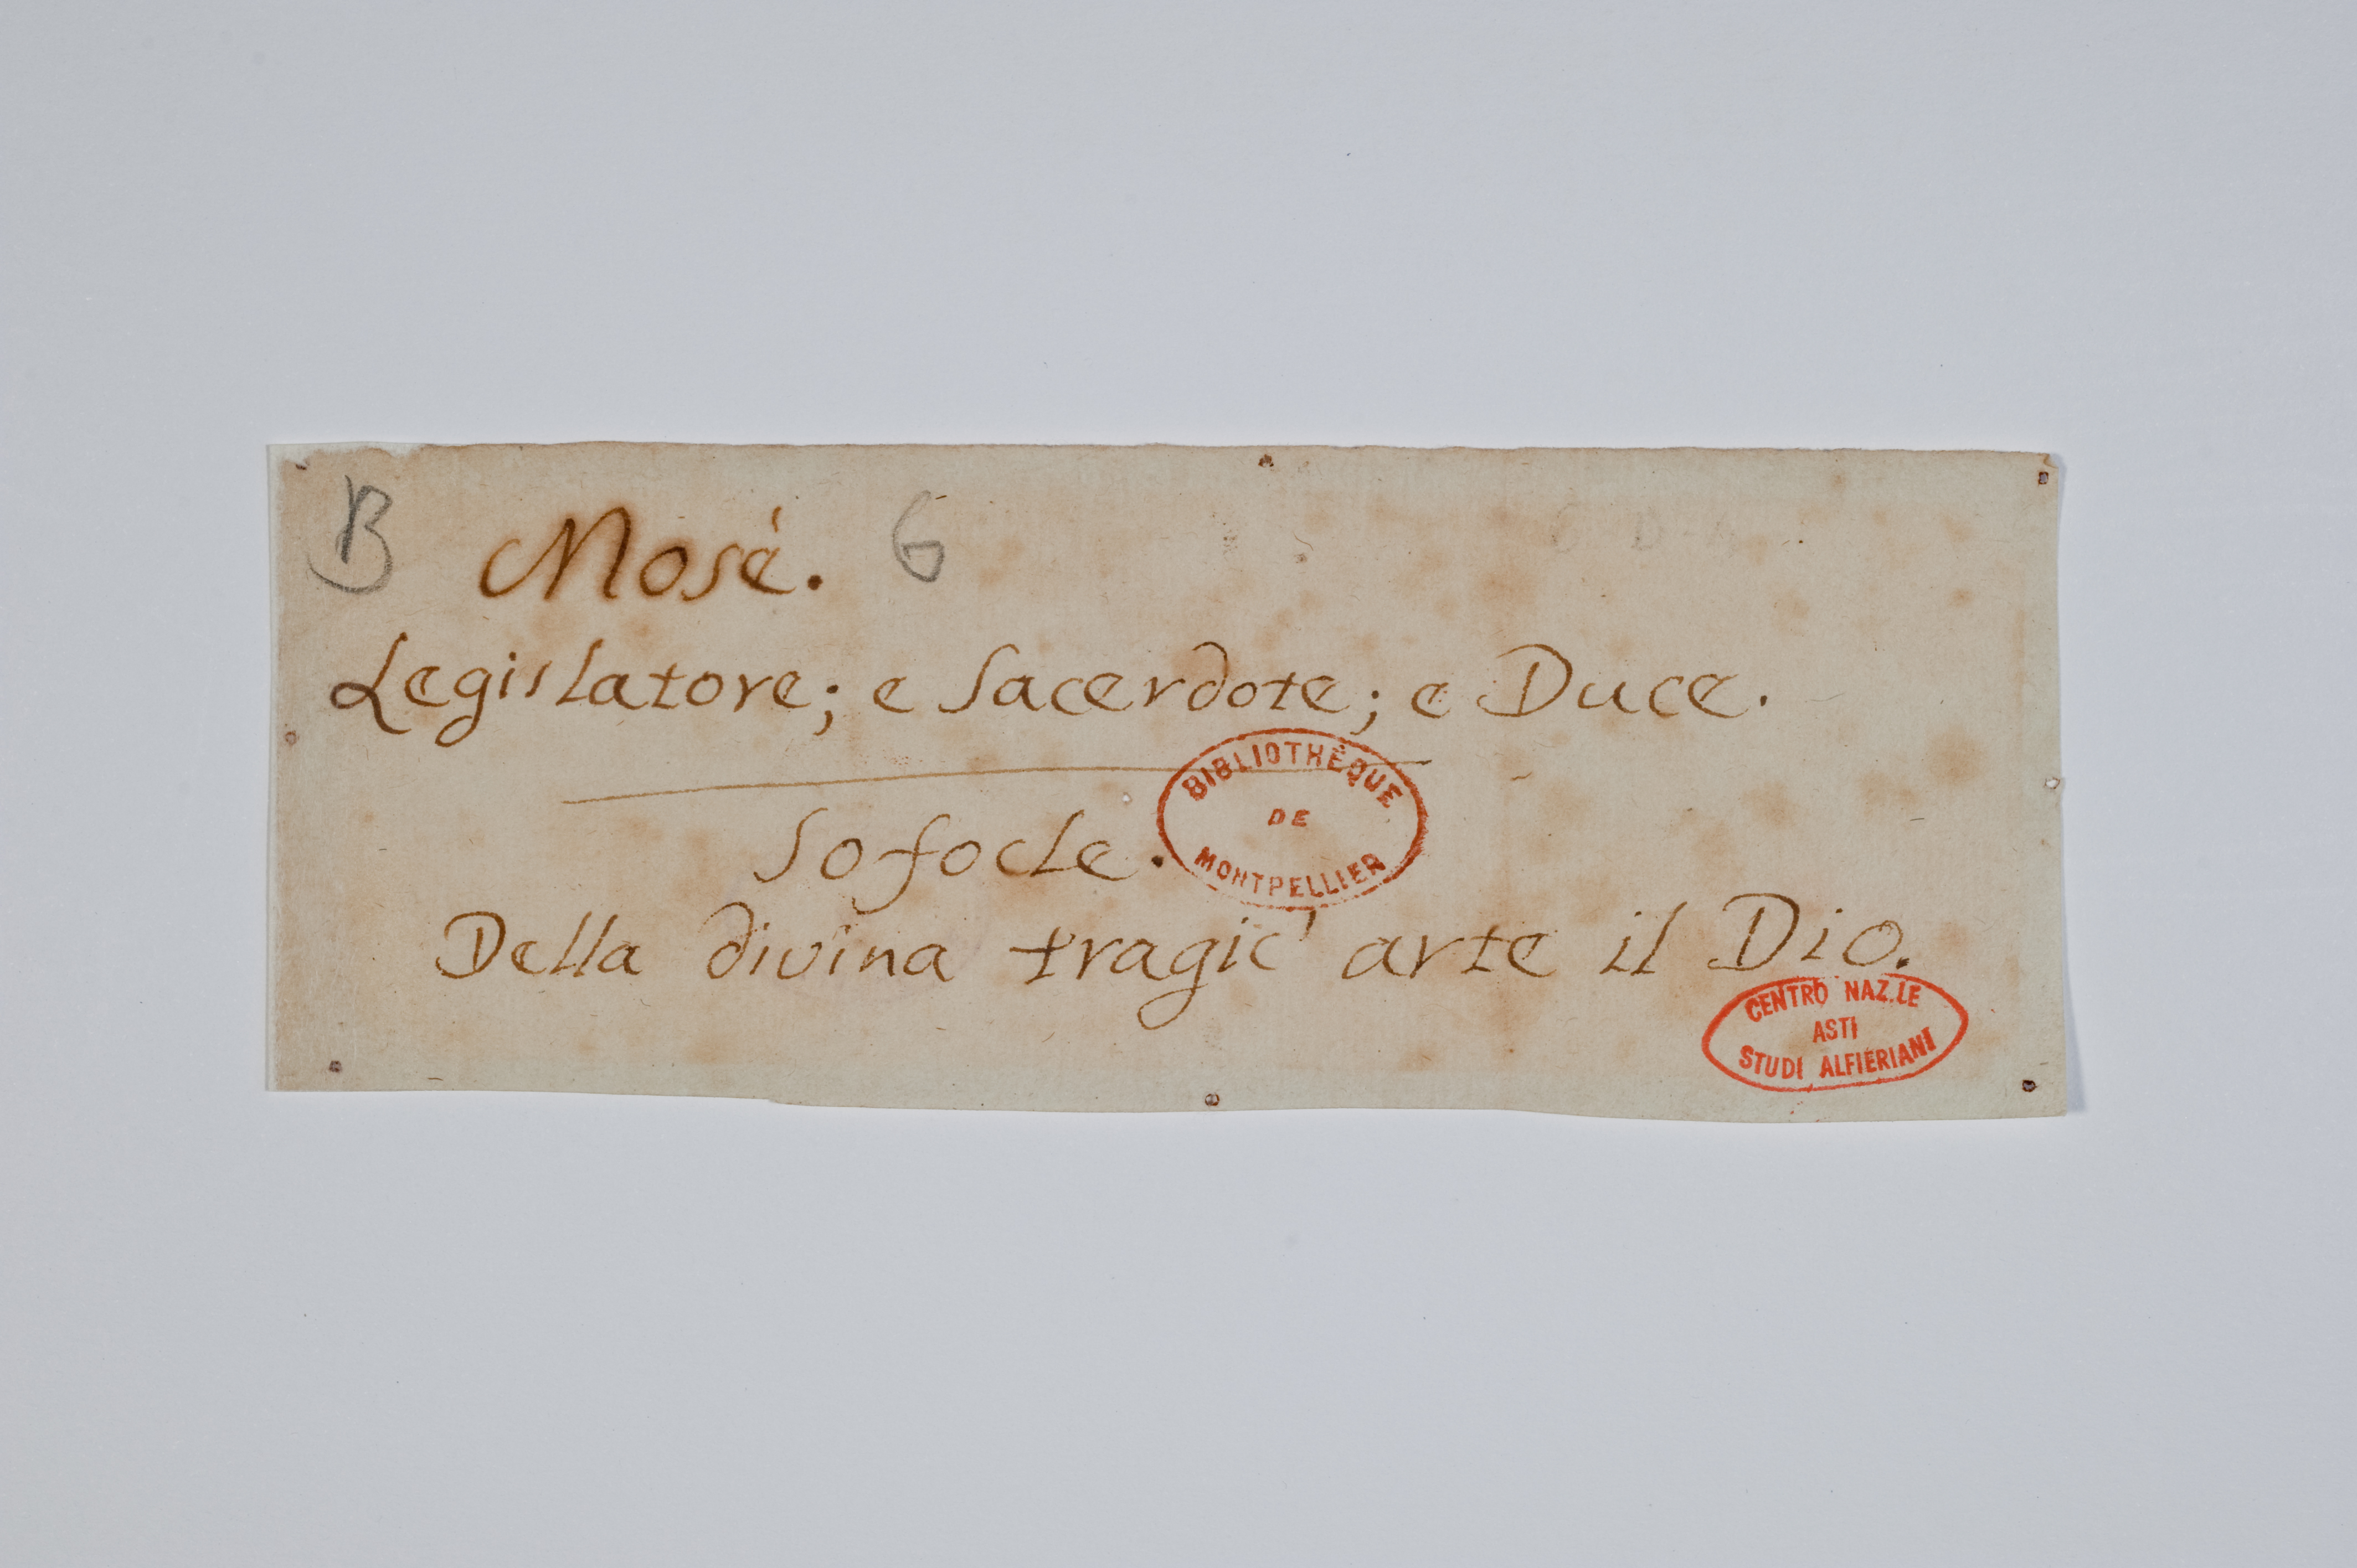 B Mosè. 6
Legislatore; e Sacerdote; e Duce.
Sofocle.
BIBLIOTHÈQUE
DE
MONTPELLIER
Della divina tragic' arte il Dio.
CENTRO NAZ.LE
ASTI
STUDI ALFIERIANI